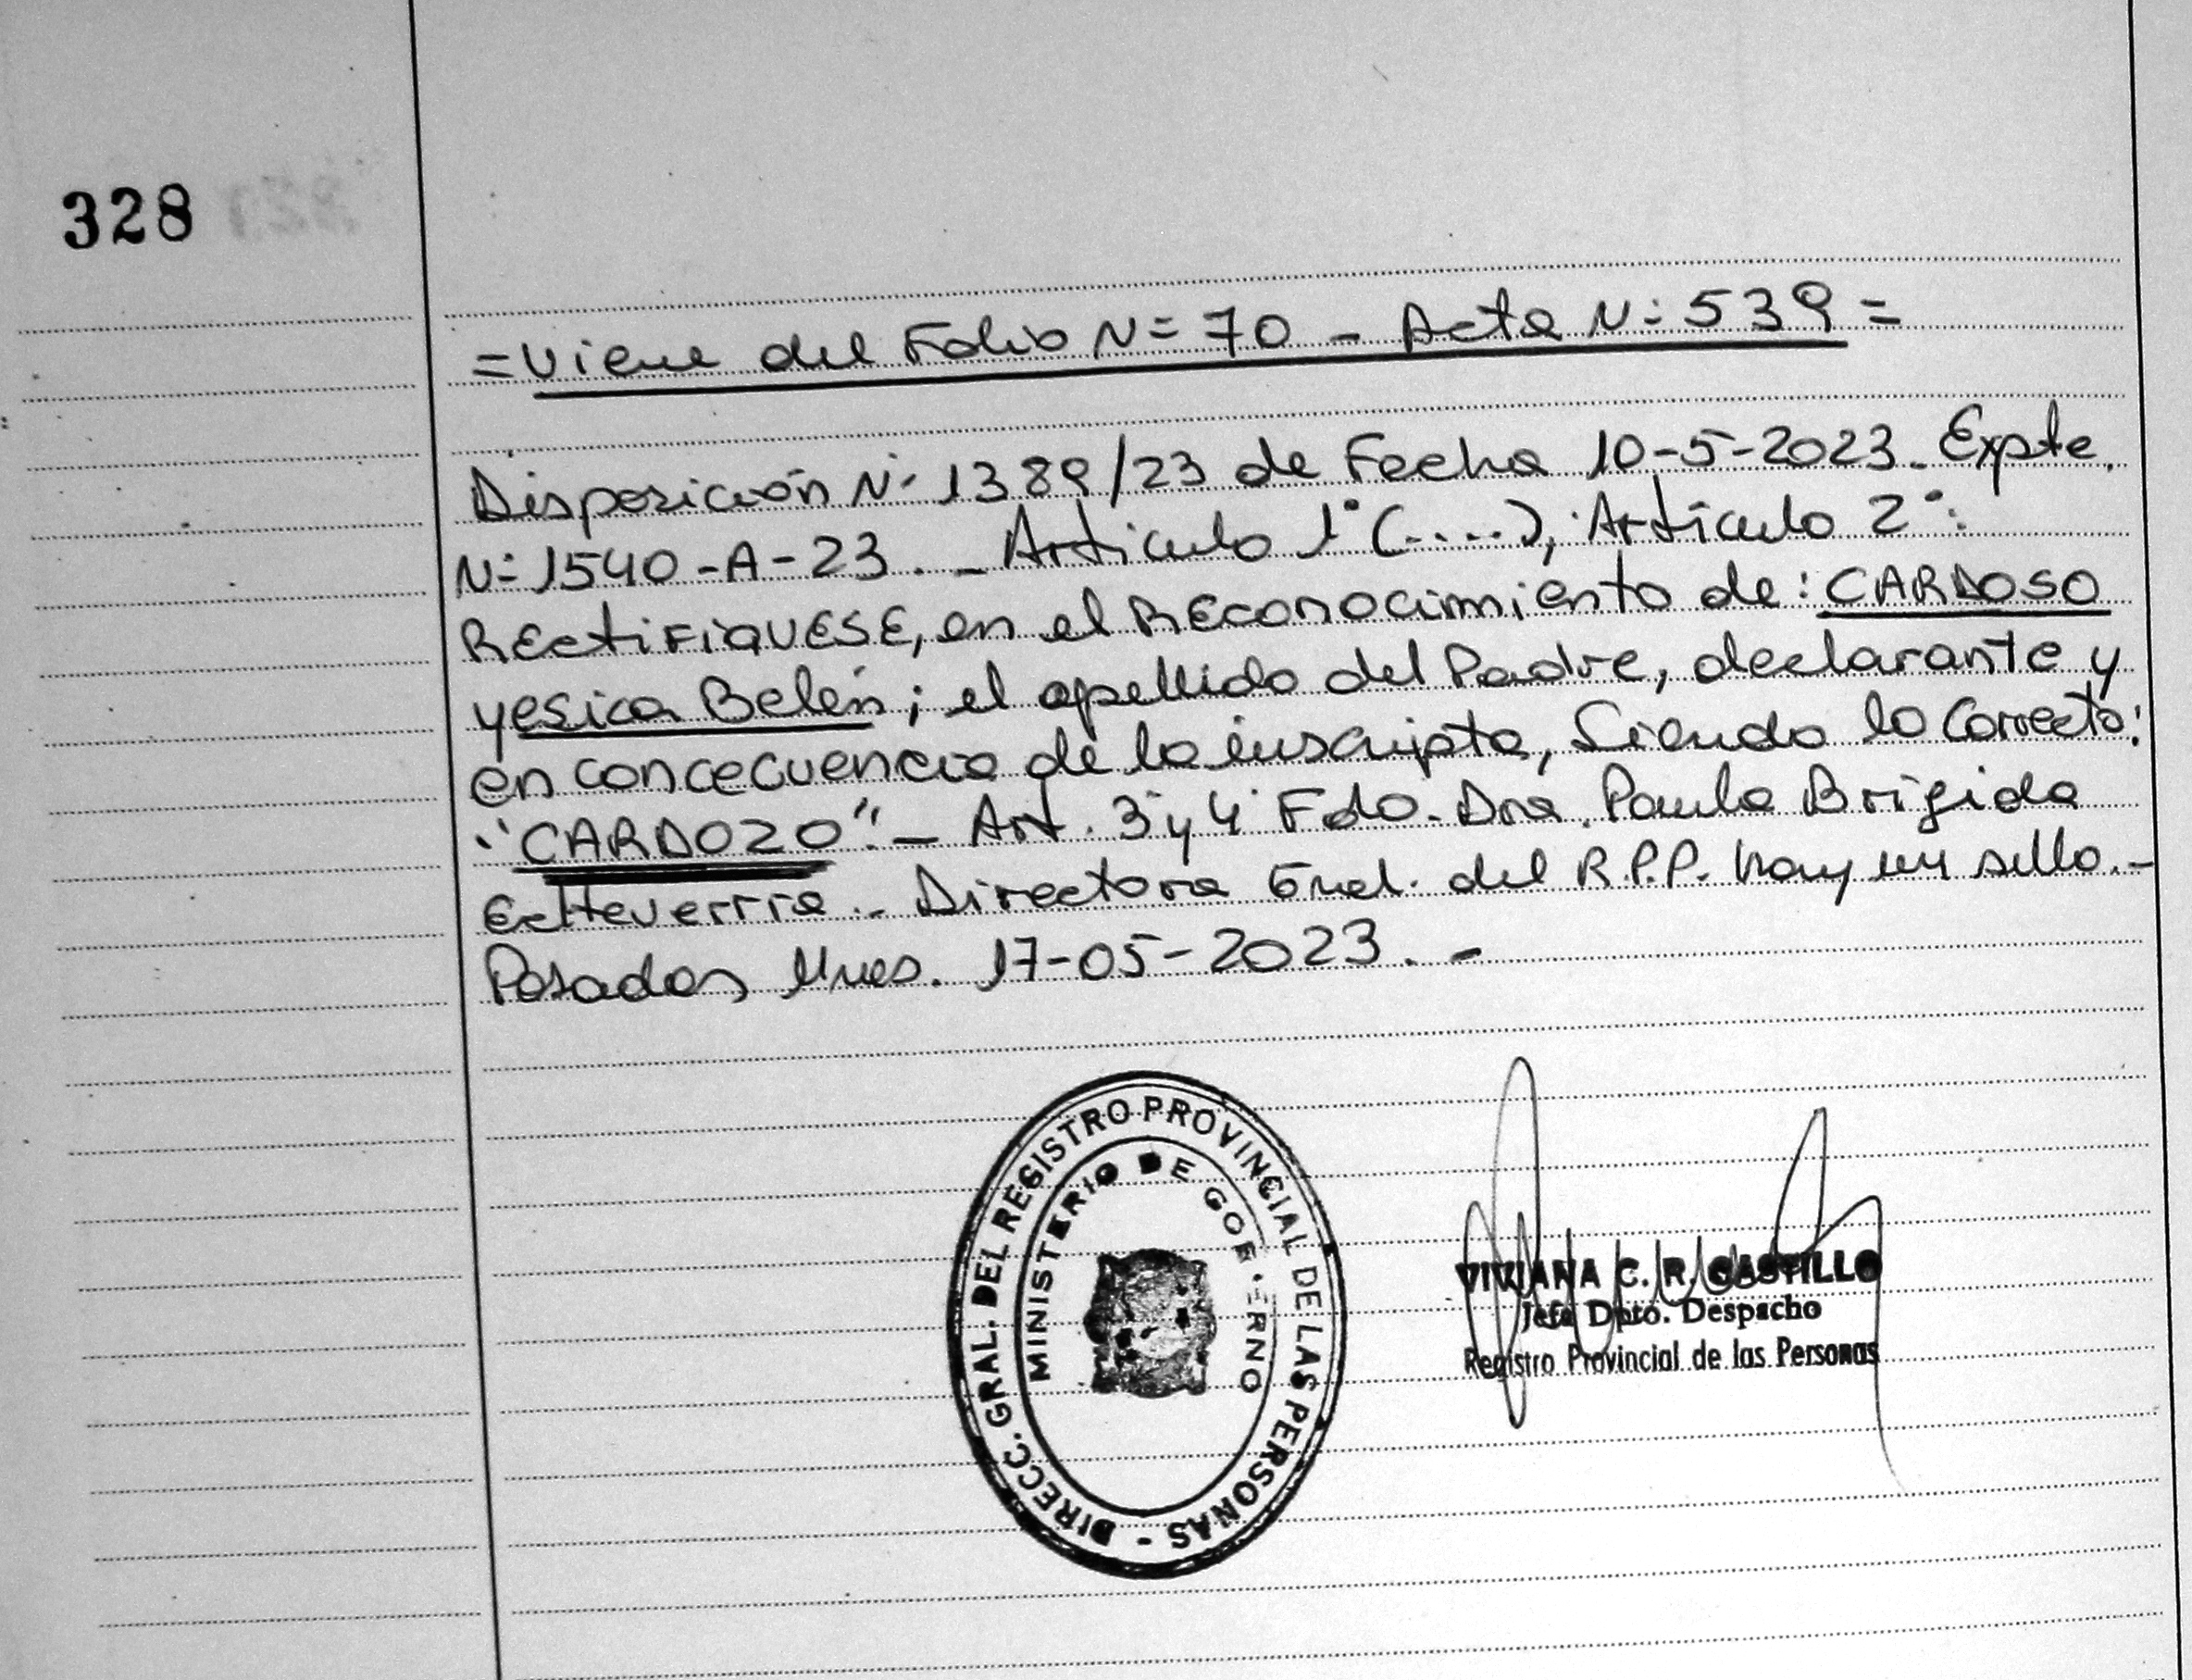 328
=Viene del Folio N= 70 - Acta N: 539=
Disposición N° 1389/23 de Fecha 10-5-2023. Expte.
N: 1540-A-23. - Articulo 1° (.....), Artículo 2°:
RECtiFIQUESE, en el REconocimiento de: CARDOSO
yesica Belén; el apellido del Padre, declarante y
en concecuencia de la inscripta, Siendo lo Correcto:
"CARDOZO".- Art. 3° y 4° Fdo. Dra. Paula Brigida
EcHeverria.- Directora Gral. del R.P.P. hay un sello.-
Posadas Mnes. 17-05-2023.-
DIRECC. GRAL. DEL REGISTRO PROVINCIAL DE LAS PERSONAS -
MINISTERIO DE GOBIERNO
VIVIANA C. R. CASTILLO
Jefa Dpto. Despacho
Registro Provincial de las Personas